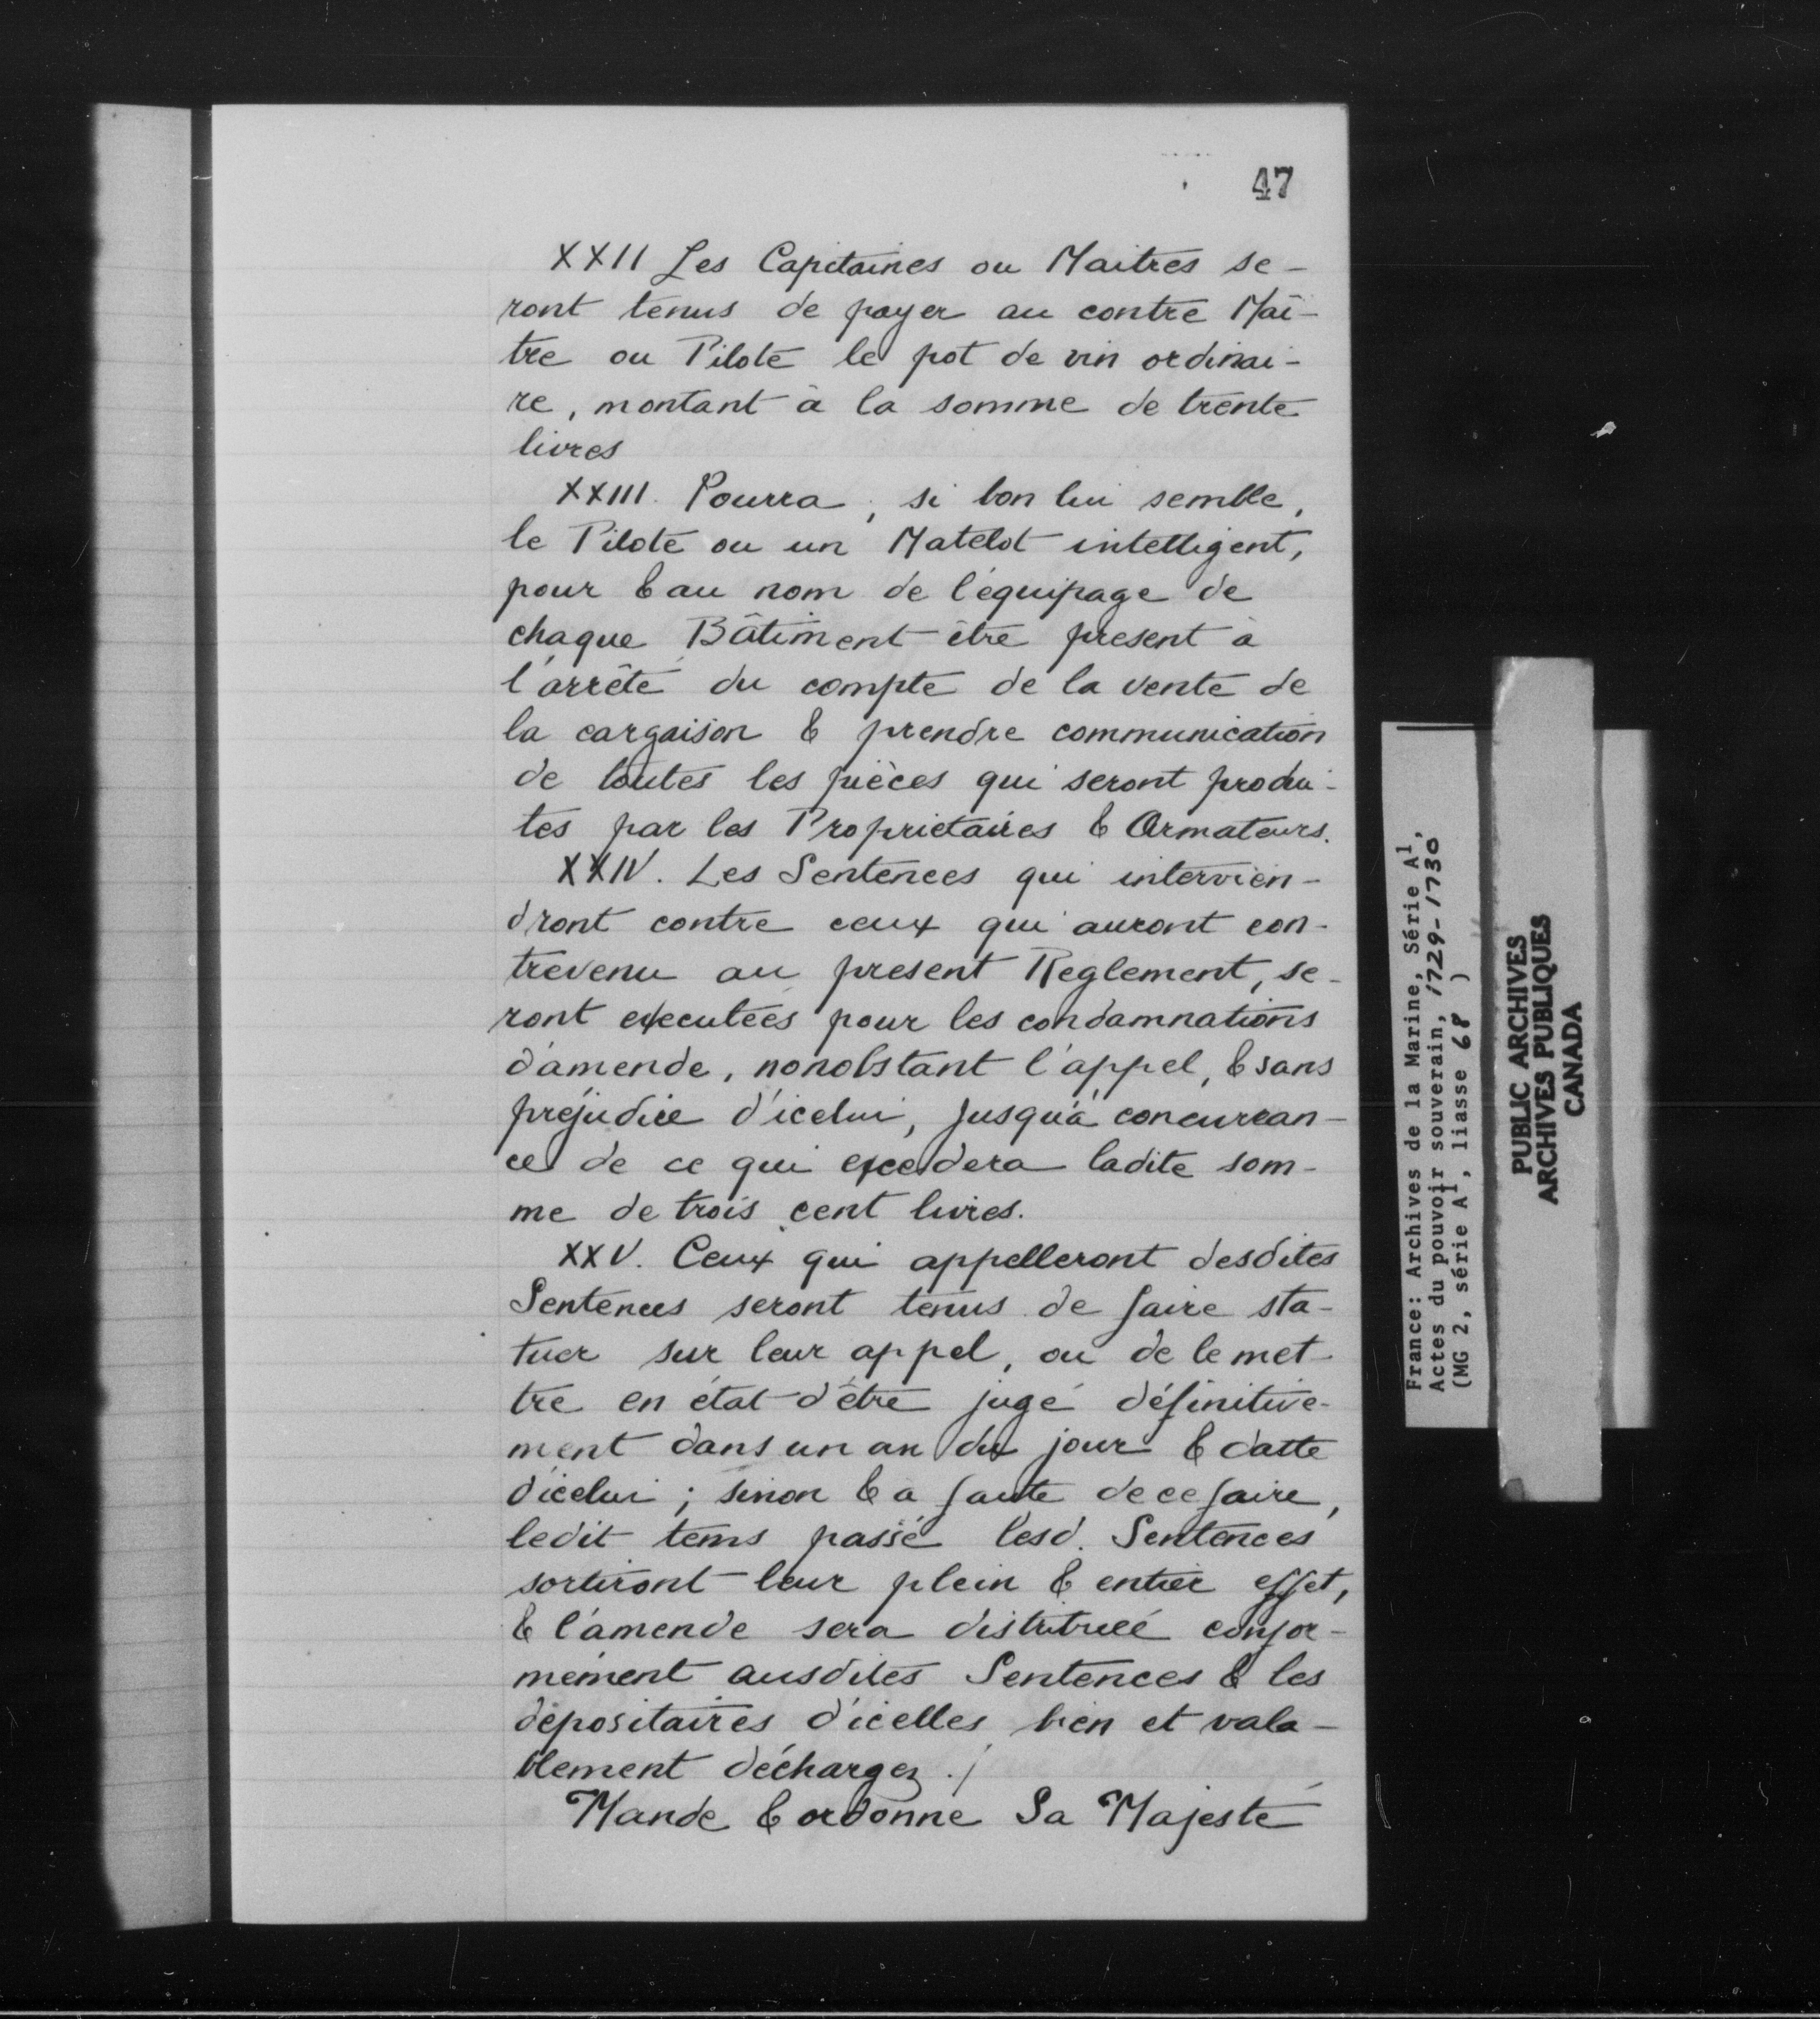 47
XXII Les Capitaines ou Maitres se-
ront tenus de payer au contre Maî-
tre ou Pilote le pot de vin ordinai-
re, montant à la somme de trente
livres
XXIII. Pourra, si bon lui semble,
le Pilote ou un Matelot intelligent,
pour & au nom de l'équipage de
chaque Bâtiment être present à
l'arrêté du compte de la vente de
la cargaison & prendre communication
de toutes les pièces qui seront produi-
tes par les Proprietaires & Armateurs.
XXIV. Les Sentences qui intervien-
dront contre ceux qui auront con-
trevenu au present Reglement, se-
ront executées pour les condamnations
d'amende, nonobstant l'appel, & sans
préjudice d'icelui, jusqu'à concurran-
ce de ce qui excedera ladite som-
me de trois cent livres.
XXV. Ceux qui appelleront desdites
Sentences seront tenus de faire sta-
tuer sur leur appel, ou de le met-
tre en état d'être jugé définitive-
ment dans un an du jour & datte
d'icelui ; sinon & a faute de ce faire,
ledit tems passé lesd. Sentences
sortiront leur plein & entier effet,
& l'amende sera distribuée confor-
mément ausdites Sentences & les
dépositaires d'icelles bien et vala-
blement déchargez ./
Mande & ordonne Sa Majesté
France: Archives de la Marine, Série A1,
Actes du pouvoir souverain, 1729-1730
(MG 2, série A1, liasse 68 )
PUBLIC ARCHIVES
ARCHIVES PUBLIQUES
CANADA